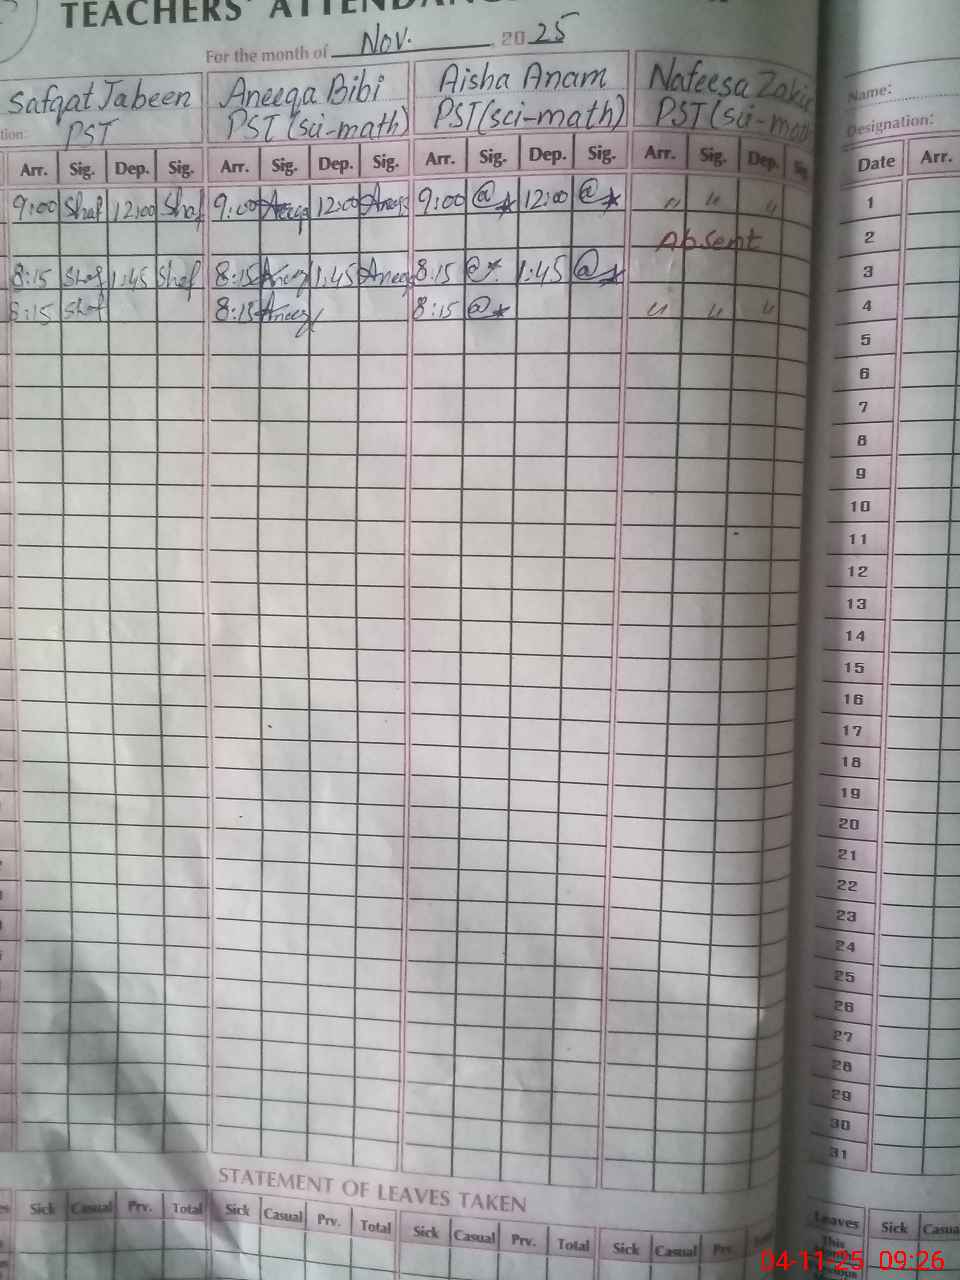 TEACHERS' ATTENDANC
For the month of Nov. 2025
Safqat Jabeen Aneeqa Bibi Aisha Anam Nafeesa Zakir Name:
tion: PST PST (sci-math) PST (sci-math) PST (sci-math) Designation:
Arr. Sig. Dep. Sig. Arr. Sig. Dep. Sig. Arr. Sig. Dep. Sig. Arr. Sig. Dep. Sig Date Arr.
9:00 Shaf 12:00 Shaf 9:00 Aneeqa 12:00 Aneeqa 9:00 12:00 " " " 1
Absent 2
8:15 Shaf 1:45 Shaf 8:15 Aneeq 1:45 Aneeq 8:15 1:45 3
8:15 Shaf 8:15 Aneeq 8:15 " " " 4
5
6
7
8
9
10
11
12
13
14
15
16
17
18
19
20
21
22
23
24
25
26
27
28
29
30
31
STATEMENT OF LEAVES TAKEN
es Sick Casual Prv. Total Sick Casual Prv. Total Sick Casual Prv. Total Sick Casual Pr Leaves Sick Casua
This
04-11-25 09:26